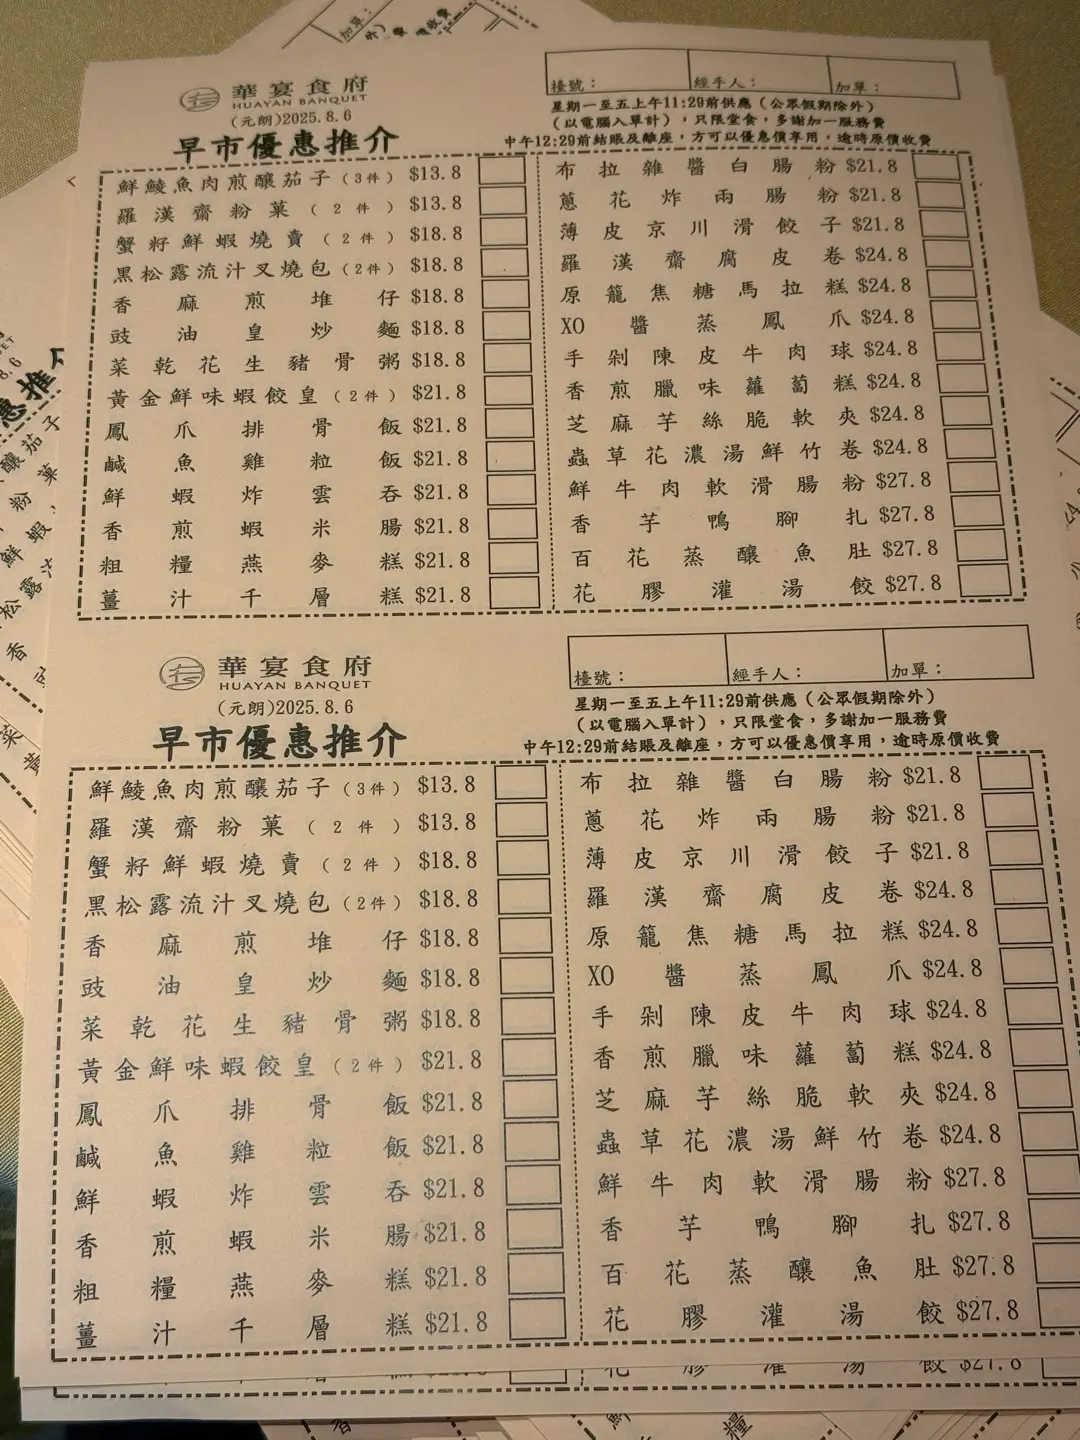 華宴食府
HUAYAN BANQUET
(元朗)2025.8.6
早市優惠推介
檯號：
經手人：
加單：
星期一至五上午11:29前供應（公眾假期除外）
（以電腦入單計），只限堂食，多謝加一服務費
中午12:29前結賬及離座，方可以優惠價享用，逾時原價收費
鮮鯪魚肉煎釀茄子（3件） $13.8
羅漢齋粉菓（2件） $13.8
蟹籽鮮蝦燒賣（2件） $18.8
黑松露流汁叉燒包（2件） $18.8
香麻煎堆仔 $18.8
豉油皇炒麵 $18.8
菜乾花生豬骨粥 $18.8
黃金鮮味蝦餃皇（2件） $21.8
鳳爪排骨飯 $21.8
鹹魚雞粒飯 $21.8
鮮蝦炸雲吞 $21.8
香煎蝦米腸 $21.8
粗糧燕麥糕 $21.8
薑汁千層糕 $21.8
布拉雜醬白腸粉 $21.8
蔥花炸兩腸粉 $21.8
薄皮京川滑餃子 $21.8
羅漢齋腐皮卷 $24.8
原籠焦糖馬拉糕 $24.8
XO醬蒸鳳爪 $24.8
手剁陳皮牛肉球 $24.8
香煎臘味蘿蔔糕 $24.8
芝麻芋絲脆軟夾 $24.8
蟲草花濃湯鮮竹卷 $24.8
鮮牛肉軟滑腸粉 $27.8
香芋鴨腳扎 $27.8
百花蒸釀魚肚 $27.8
花膠灌湯餃 $27.8
華宴食府
HUAYAN BANQUET
(元朗)2025.8.6
早市優惠推介
檯號：
經手人：
加單：
星期一至五上午11:29前供應（公眾假期除外）
（以電腦入單計），只限堂食，多謝加一服務費
中午12:29前結賬及離座，方可以優惠價享用，逾時原價收費
鮮鯪魚肉煎釀茄子（3件） $13.8
羅漢齋粉菓（2件） $13.8
蟹籽鮮蝦燒賣（2件） $18.8
黑松露流汁叉燒包（2件） $18.8
香麻煎堆仔 $18.8
豉油皇炒麵 $18.8
菜乾花生豬骨粥 $18.8
黃金鮮味蝦餃皇（2件） $21.8
鳳爪排骨飯 $21.8
鹹魚雞粒飯 $21.8
鮮蝦炸雲吞 $21.8
香煎蝦米腸 $21.8
粗糧燕麥糕 $21.8
薑汁千層糕 $21.8
布拉雜醬白腸粉 $21.8
蔥花炸兩腸粉 $21.8
薄皮京川滑餃子 $21.8
羅漢齋腐皮卷 $24.8
原籠焦糖馬拉糕 $24.8
XO醬蒸鳳爪 $24.8
手剁陳皮牛肉球 $24.8
香煎臘味蘿蔔糕 $24.8
芝麻芋絲脆軟夾 $24.8
蟲草花濃湯鮮竹卷 $24.8
鮮牛肉軟滑腸粉 $27.8
香芋鴨腳扎 $27.8
百花蒸釀魚肚 $27.8
花膠灌湯餃 $27.8
花膠灌湯餃 $27.8